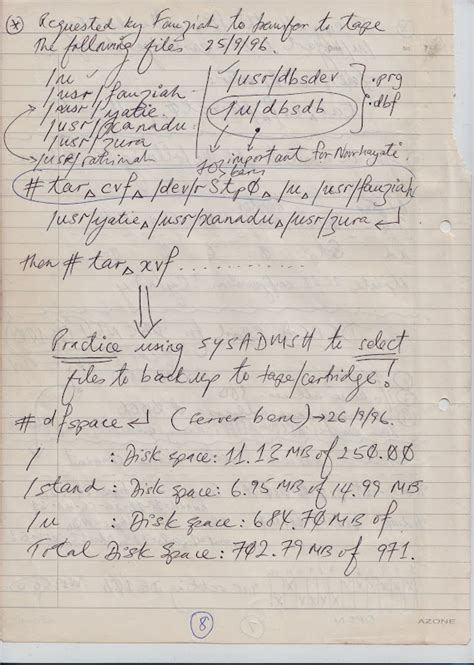 (x) Requested by Fauziah to transfer to tape
the following files 25/9/96.
/u ✓
/usr/fauziah
/usr/yatie
/usr/xannadu
/usr/zura
/usr/rahimah
/usr/dbsdev
/u/dbsdb
.prg
.dbf
important for Norhayati
# tar△cvf△/dev/rStp0△/u△/usr/fauziah
/usr/yatie△/usr/xannadu△/usr/zura ↲
then # tar△xvf ............
Practice using SYSADMSH to select
files to back up to tape/cartridge!
# dfspace ↲ (server baru) → 26/9/96.
/ : Disk space: 11.13 MB of 250.00
/stand : Disk space: 6.95 MB of 14.99 MB
/u : Disk space: 684.70 MB of
Total Disk Space: 702.79 MB of 971.
8
AZONE